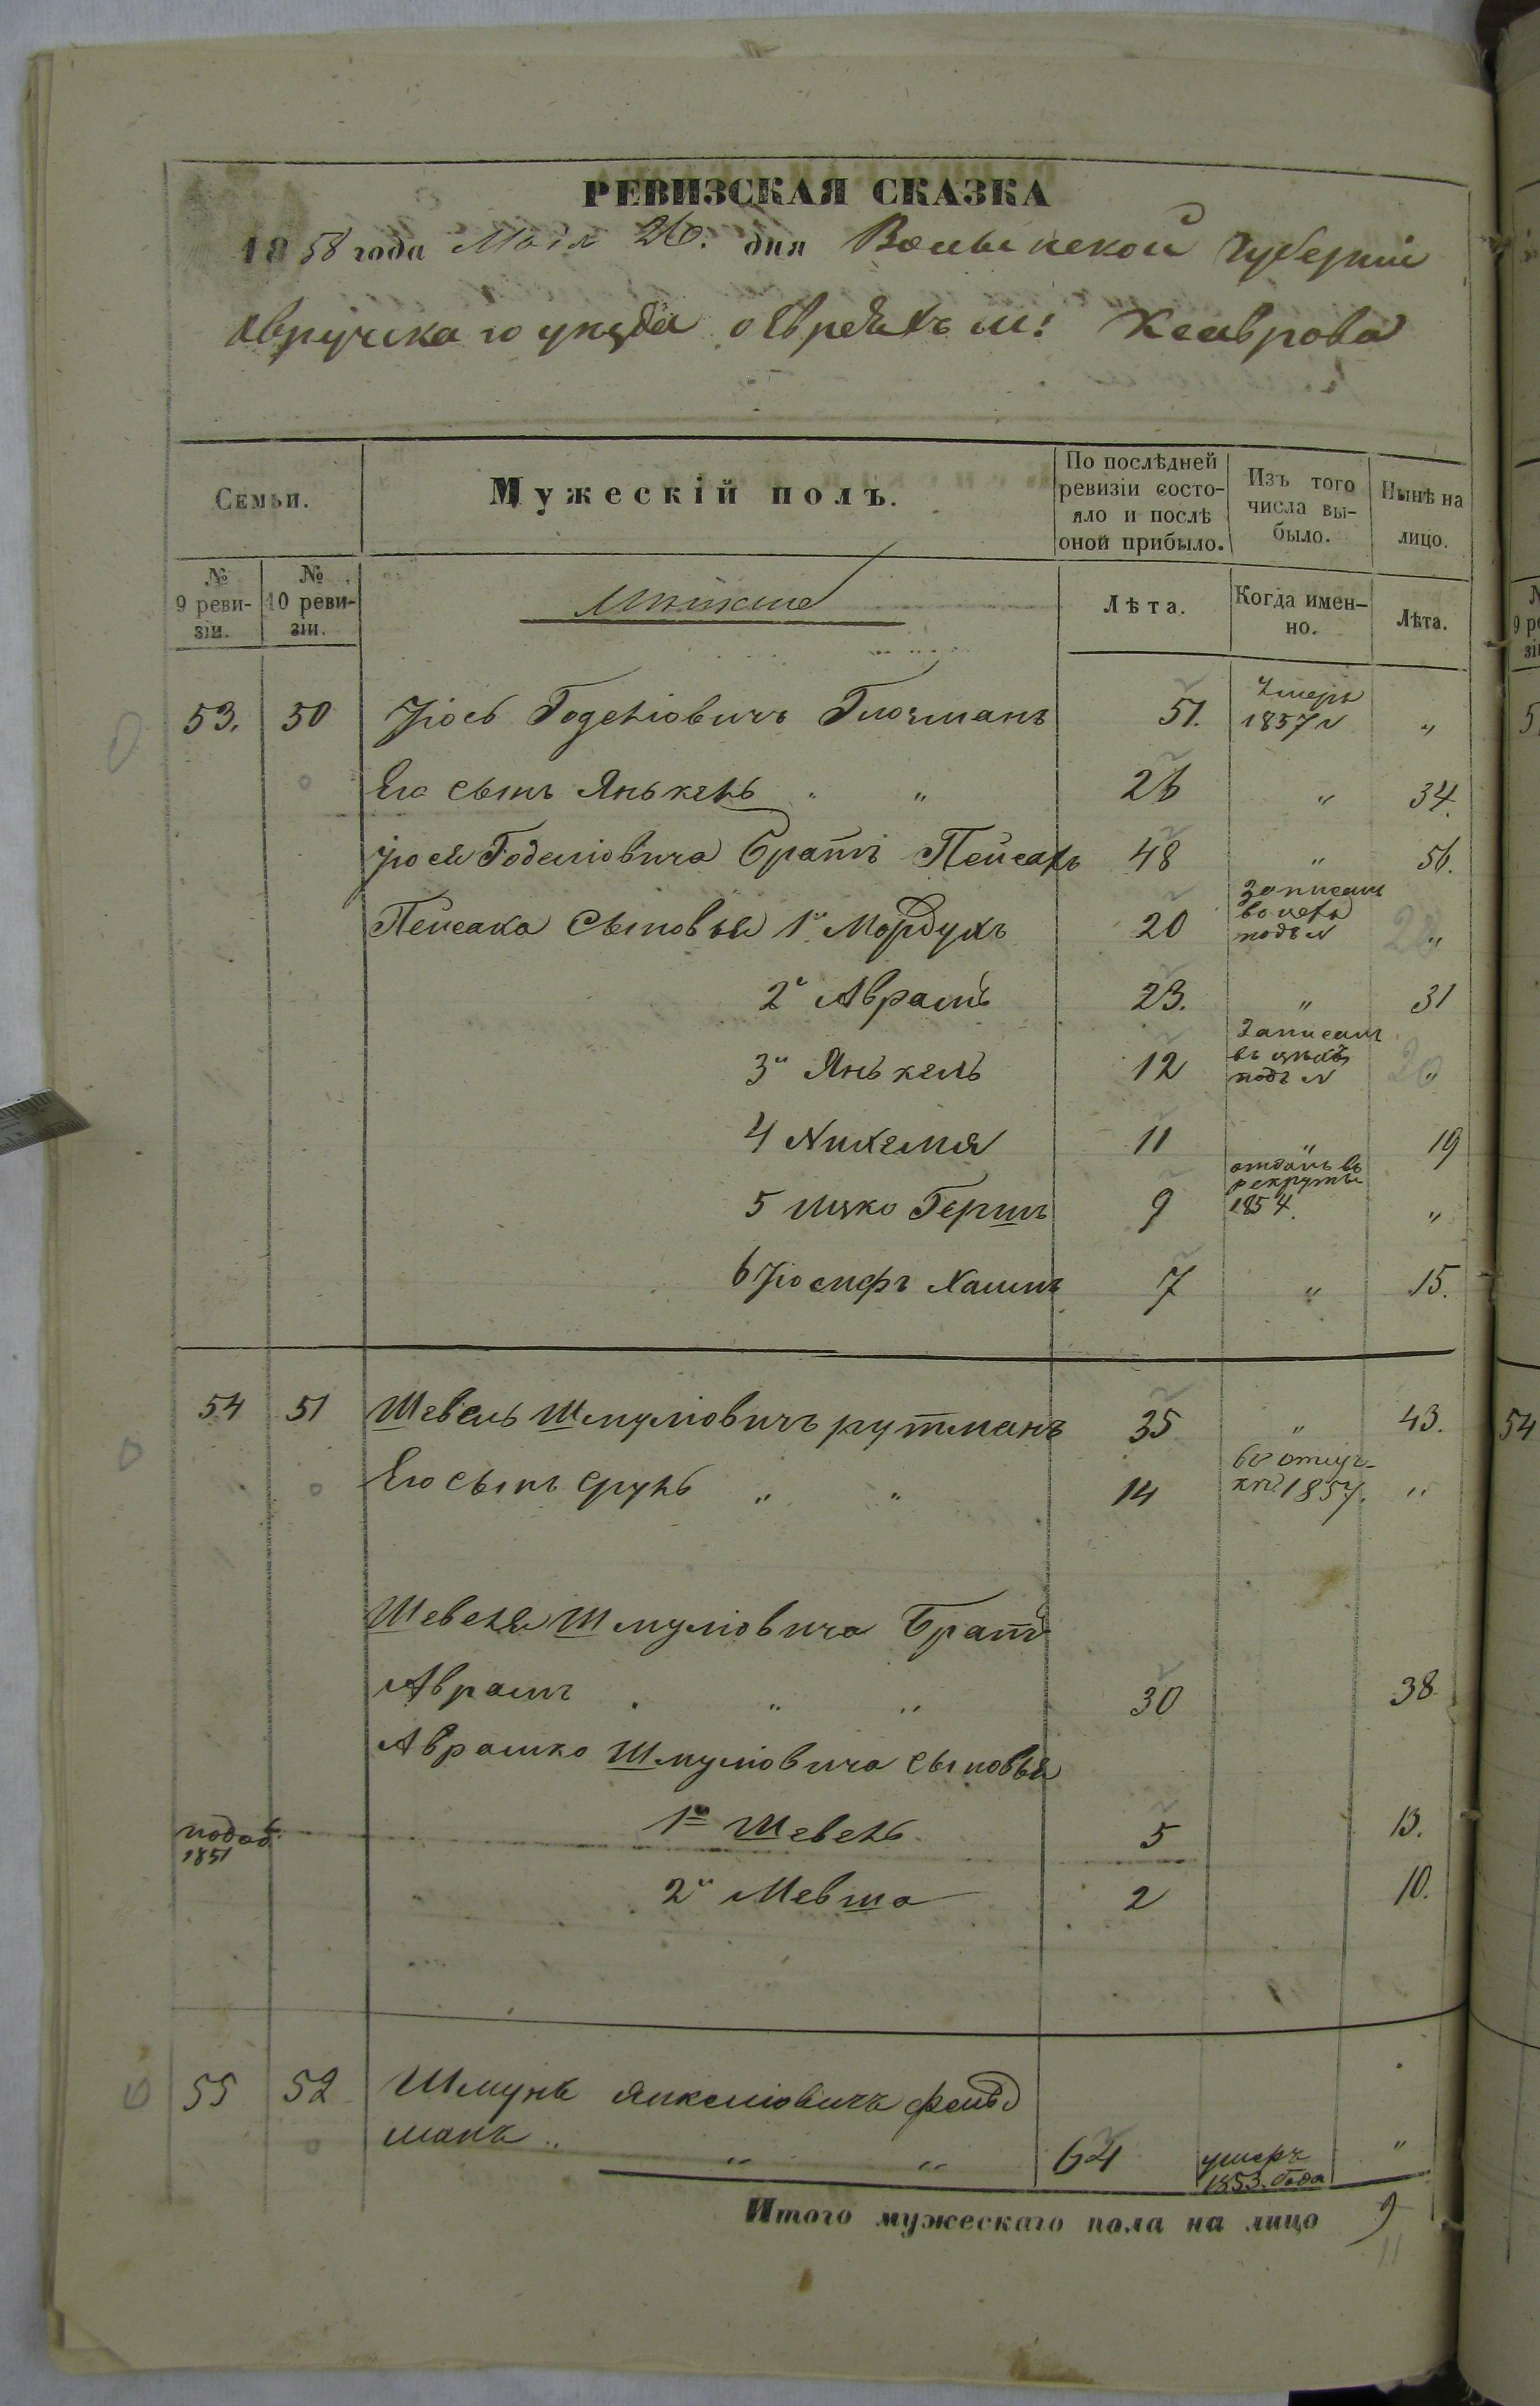 РЕВИЗСКАЯ СКАЗКА
1858 года Мая 26. дня Волынской Губерніи
Овручскаго уезда о Евреяхъ м:
Семьи. Мужескій полъ. По послѣдней ревизіи состояло и послѣ оной прибыло. Изъ того числа выбыло. Нынѣ на лицо.
№ 9 ревизіи. № 10 ревизіи. Лѣта. Когда именно. Лѣта.
53. 50 Іось Годеліовичъ 51. Умеръ 1857 "
Его сынъ Янькель " " 26 " 34.
Іося Годеліовича Братъ Пейсахъ 48 " 56.
Пейсаха Сыновья 1й Мордухъ 20 Записанъ подъ N 28 "
2й Аврамъ 23. " 31
3й Янькель 12 Записанъ въ цехъ подъ N 20 "
4 Нихемя 11 " 19
5 Ицко Гершъ 9 отданъ въ рекруты 1854. "
6 Іосифъ Хаимъ 7 " 15.
54 51 Шевель Шмуліовичъ рутманъ 35 " 43.
Его сынъ Сруль " " 14 1857. "
Шевеля Шмуліовича Братъ
Аврамъ . " " 30 38
Аврамко Шмуліовича сыновья
1й Шевель 5 13.
1851
2й Мевша 2 10.
55 52 Шмуль Янкеліовичъ фельд
манъ " " " 64 умеръ 1853. Года "
Итого мужескаго пола на лицо 9
11